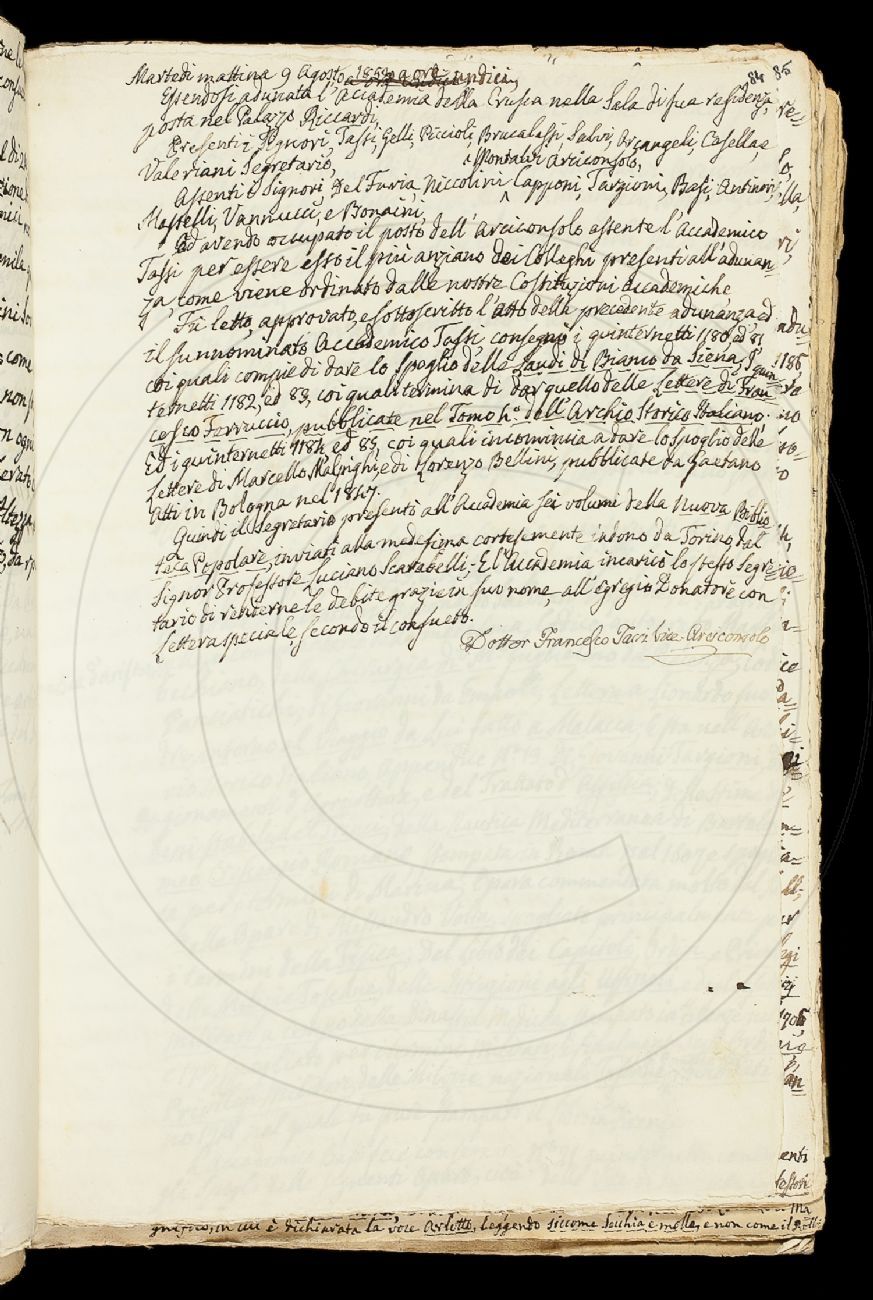 84 85
Martedì mattina 9 Agosto 1853 a ore undici,
Essendosi adunata l'Accademia della Crusca nella Sala di sua residenza,
posta nel Palazzo Riccardi,
Presenti i Signori, Tassi, Gelli, Piccioli, Brucalassi, Salvi, Arcangeli, Casella, e
Valeriani Segretario,
Montalvi Arciconsolo,
Assenti i Signori Del Furia, Niccolini Capponi, Targioni, Basi, Antinori,
Mastelli, Vannucci, e Bonaini,
Ed avendo occupato il posto dell'Arciconsolo assente l'Accademico
Tassi per essere esso il più anziano dei Colleghi presenti all'adunan-
za, come viene ordinato dalle nostre Costituzioni accademiche
Fù letto, approvato, e sottoscritto l'atto della precedente adunanza, ed
il sunnominato Accademico Tassi, consegnò i quinternetti 1180, ed 81
coi quali compie di dare lo spoglio delle Laudi di Bianco da Siena, I quin-
ternetti 1182, ed 83, coi quali termina di dar quello delle Lettere di Fran
cesco Ferruccio, pubblicate nel Tomo 4.º dell'Archio Storico Italiano.
Ed i quinternetti 1184 ed 85, coi quali incomincia a dare lo spoglio delle
Lettere di Marcello Malpighi, e di Lorenzo Bellini, pubblicate da Gaetano
Atti in Bologna nel 1847.
Quindi il Segretario presentò all'Accademia sei volumi della Nuova Biblio
teca Popolare, inviati alla medesima cortesemente in dono da Torino dal
Signor Professore Luciano Scarabelli; E l'Accademia incaricò lo stesso Segre-
tario di renderne le debite grazie in suo nome, all'egregio Donatore con
Lettera speciale, secondo il consueto.
Dottor Francesco Tassi Vice-Arciconsolo
in cui è dichiarata la voce Arlotto, leggendo siccome Secchia e melle, e non come il